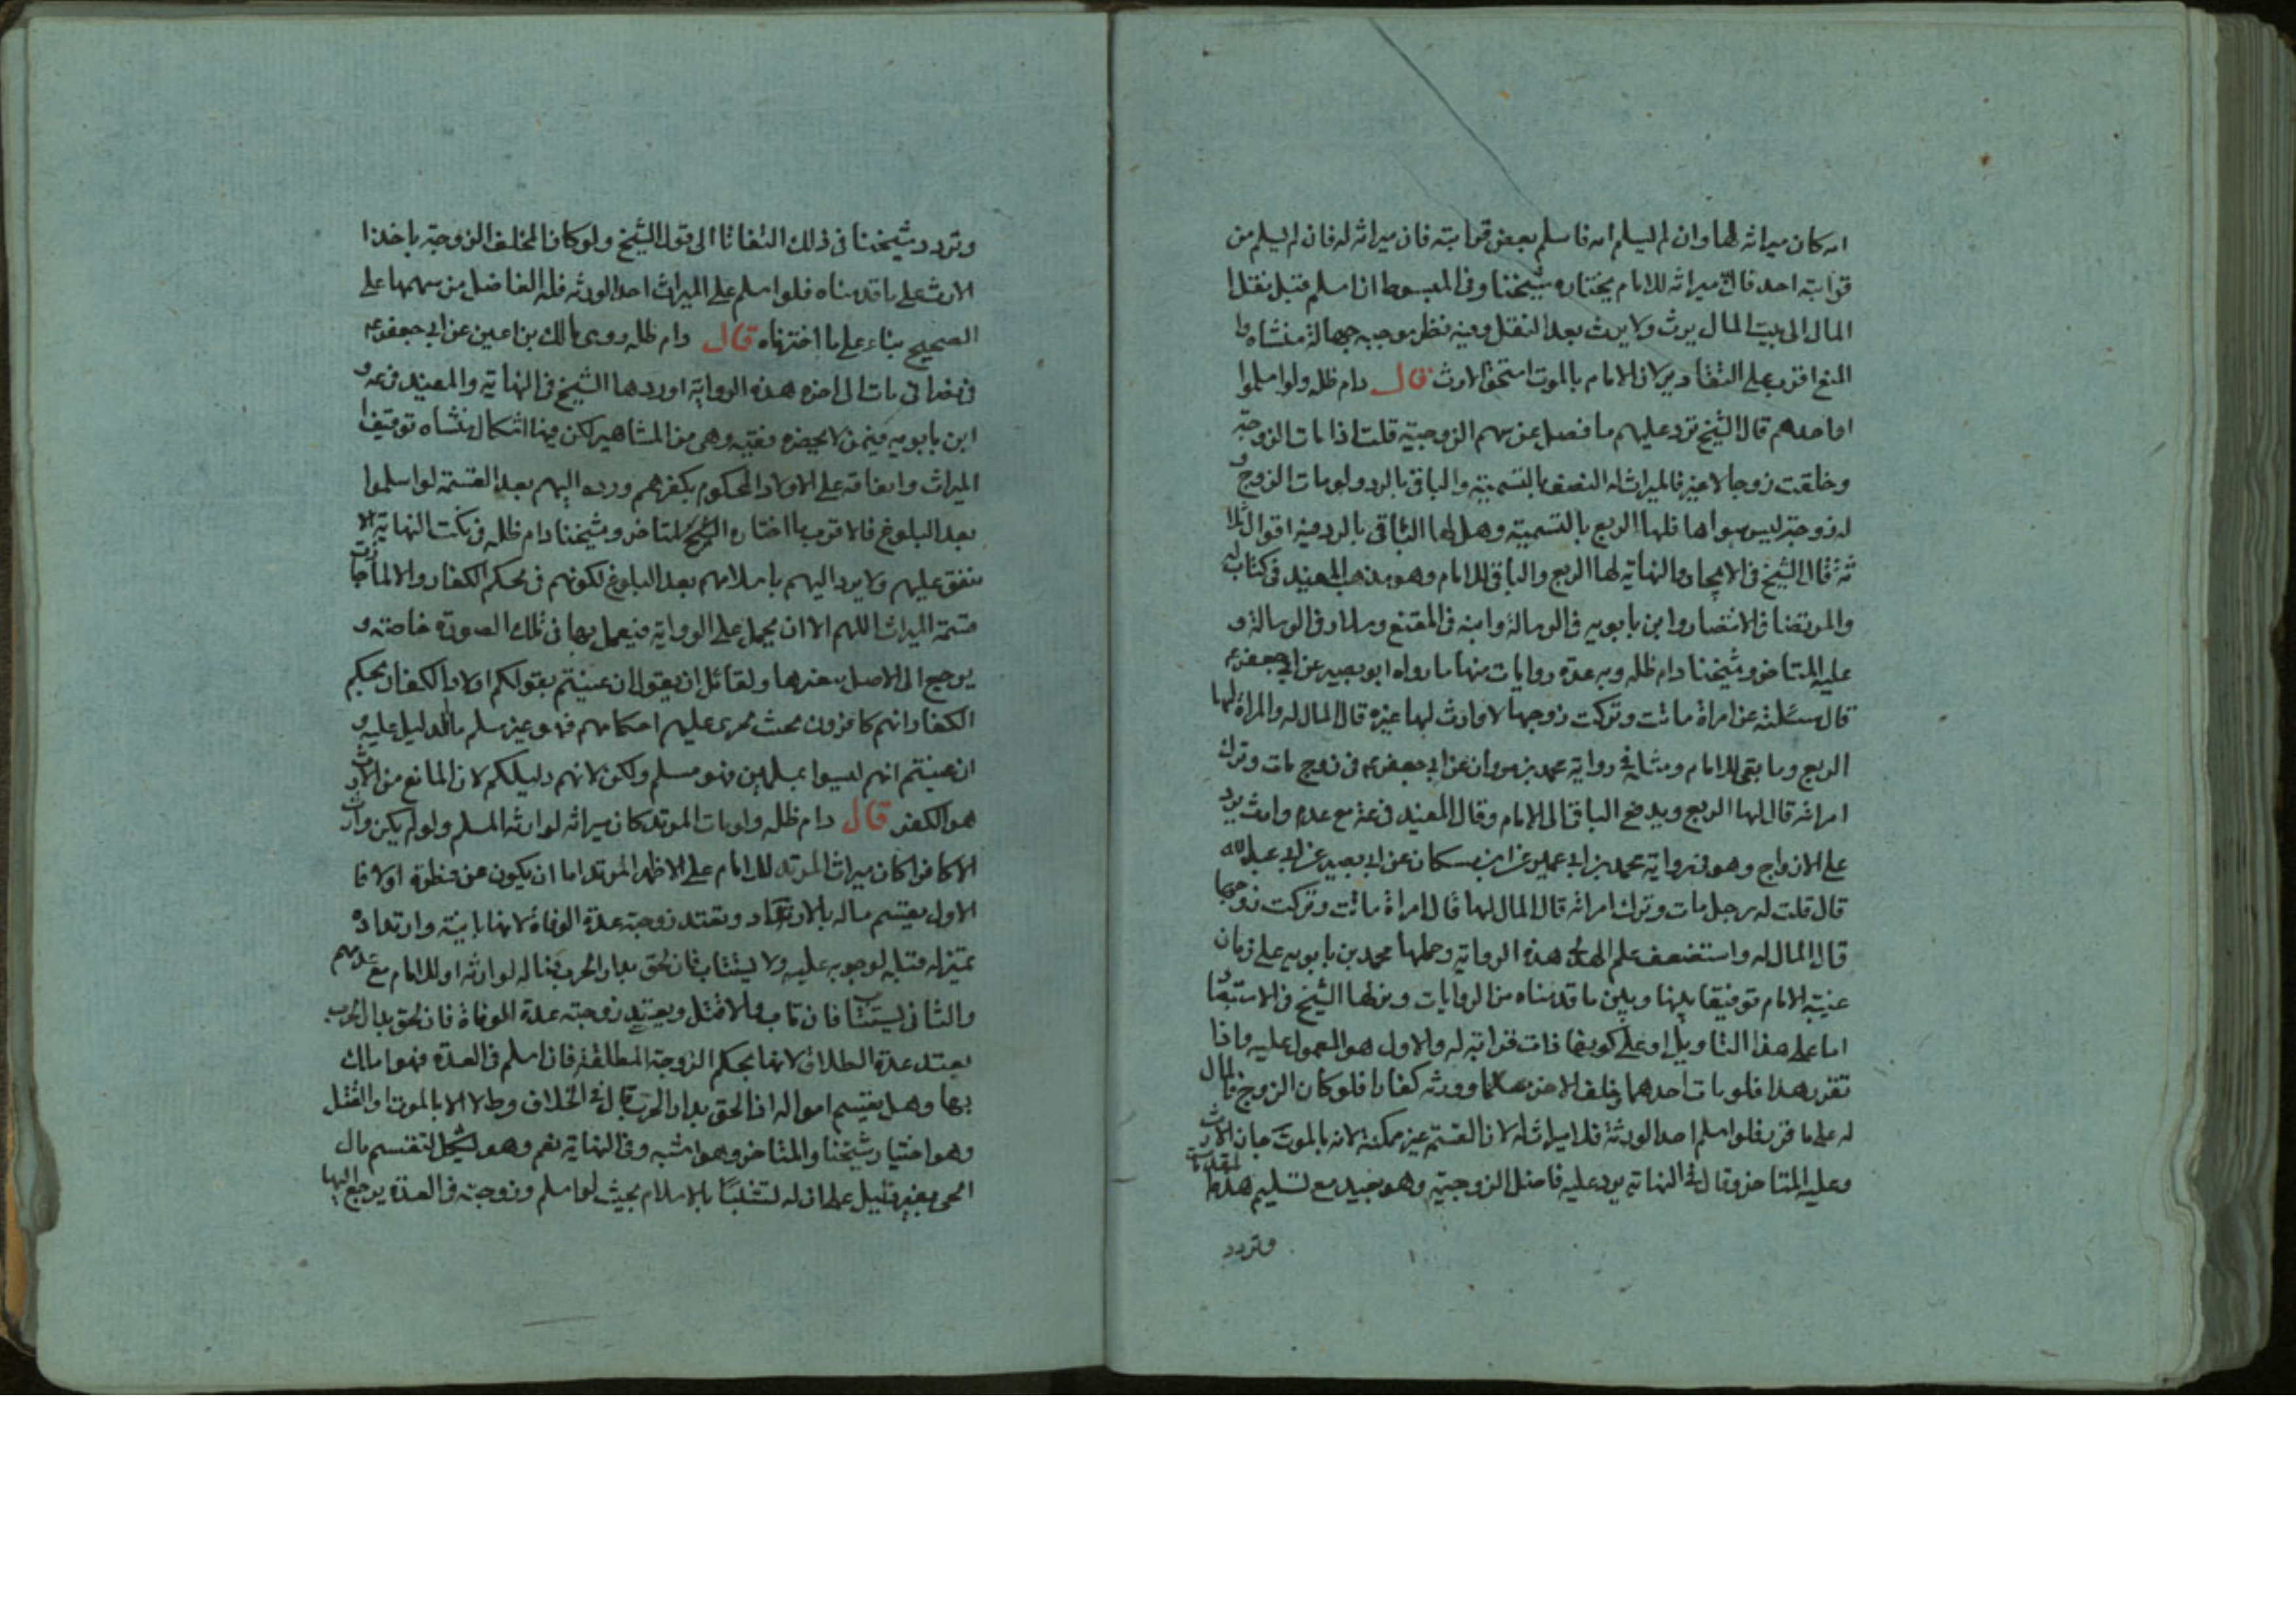 امه كان ميراثه لها وان لم يسلم امه فاسلم بعض قرابته فان ميراثه له فان لم يسلم من
قرابته احد فان ميراثه للامام يختاره شيخنا وفى المبسوط ان اسلم قبل نقل
المال الى بيت المال يرث ولا يرث بعد النقل وفيه نظر موجبه جهالة منشاه وا
المنع اقرب على التقادير لان الامام بالموت استحق الارث قال دام ظله ولو اسلموا
او احدهم قال الشيخ ترد عليهم ما فضل عن سهم الزوجية قلت اذا مات الزوجة
وخلفت زوجا لا غير فالميراث له النصف بالتسمية والباقى بالرد ولو مات الزوج و
له زوجة ليس سواها فلها الربع بالتسمية وهل لها الباقى بالرد فيه اقوال ثلا
ثة قال الشيخ فى الايجاز والنهاية لها الربع والباقى للامام وهو مذهب المفيد فى كتاب
والمرتضا فى الانتصار وابن بابويه فى الرسالة وابنه فى المقنع وسلار فى الرسالة و
عليه المتاخر وشيخنا دام ظله وبه عدة روايات منها ما رواه ابو بصير عن ابى جعفر ع
قال سئلته عن امراة ماتت وتركت زوجها لا وارث لها غيره قال المال له والمراة لها
الربع وما بقى للامام ومثله فى رواية محمد بن مروان عن ابى جعفر ع فى زوج مات وترك
امراته قال لها الربع ويدفع الباقى الى الامام وقال المفيد فى عه مع عدم وارث يرد
على الازواج وهو فى رواية محمد بن ابى عمير عن ابن مسكان عن ابى بصير عن ابى عبد الله
قال قلت له رجل مات وترك امراته قال المال لها قال امراة ماتت وتركت زوجها
قال المال له واستضعف علم الهدى هذه الرواية وحملها محمد بن بابويه على زمان
غيبة الامام توفيقا بينها وبين ما قدمناه من الروايات ونزلها الشيخ فى الاستبصا
اما على هذا التاويل او على كونها ذات قرابة له والاول هو المعمول عليه واذا
تقرر هذا فلو مات احدهما وخلف الاخر مسلما وورثه كفارا فلو كان الزوج فالمال
له على ما قرر فلو اسلم احد الورثة فلا ميراث له لان القسم غير ممكنة لانه بالموت حاز الارث
وعليه المتاخر وقال فى النهاية يرد عليه فاضل الزوجية وهو جيد مع تسليم هذه المقدمات
وتردد
وتردد شيخنا فى ذلك التفاتا الى قول الشيخ ولو كان المخلف الزوجة باخذ ا
الارث على ما قدمناه فلو اسلم على الميراث احد الورثه فله الفاضل من سهمها على
الصحيح بناء على ما اخترناه قال دام ظله وروى مالك بن اعين عن ابى جعفر ع
فى نصرانى مات الى اخره هذه الرواية اوردها الشيخ فى النهاية والمفيد فى عه و
ابن بابويه فيمن لا يحضره فقيه وهى من المشاهير لكن فيها اشكال منشاه توقيف
الميراث وانفاقه على الاولاد المحكوم بكفرهم ورده اليهم بعد القسمة لو اسلموا
بعد البلوغ فالاقرب ما اختاره الشيخ المتاخر وشيخنا دام ظله فى نكت النهاية الا
ينفق عليهم ولا يرد اليهم باسلامهم بعد البلوغ لكونهم فى حكم الكفار والا لما جازت
قسمة الميراث اللهم الا ان يحمل على الرواية فيعمل بها فى تلك الصورة خاصة و
يرجع الى الاصل بغيرها ولقائل ان يقول ان عنيتم بقولكم اولاد الكفار بحكم
الكفار انهم كافرون بحيث تجرى عليهم احكامهم فهو غير مسلم ما الدليل عليه و
ان عنيتم انهم ليسوا بمسلمين فهو مسلم ولكن لانهم دليلكم لان المانع من الارث
هو الكفر قال دام ظله ولو مات المرتد كان ميراثه لوارثه المسلم ولو لم يكن وارث
الا كافرا كان ميراث المرتد للامام على الاظهر المرتد اما ان يكون عن فطرة اولا فا
الاول يقسم ماله بالارتداد وتعتد زوجته عدة الوفاة لانها باينة وارتداده
بمنزله قتله لوجوبه عليه ولا يستتاب فان لحق بدار الحرب فماله لوارثه او للامام مع عدمهم
والثانى يستتاب فان تاب والا قتل ويعتد زوجته عدة الوفاة فان لحق بدار الحرب
يعتد عدة الطلاق لانها بحكم الزوجة المطلقة فان اسلم فى العدة فهو املك
بها وهل يقسم امواله اذا لحق بدار الحرب قال فى الخلاف وط لا الا بالموت او القتل
وهو اختيار شيخنا والمتاخر وهو اشبه وفى النهاية نعم وهو يشكل لتقسم مال
الحى بغير دليل على ان له تشبثا بالاسلام بحيث لو اسلم وزوجته فى العدة يرجع اليها